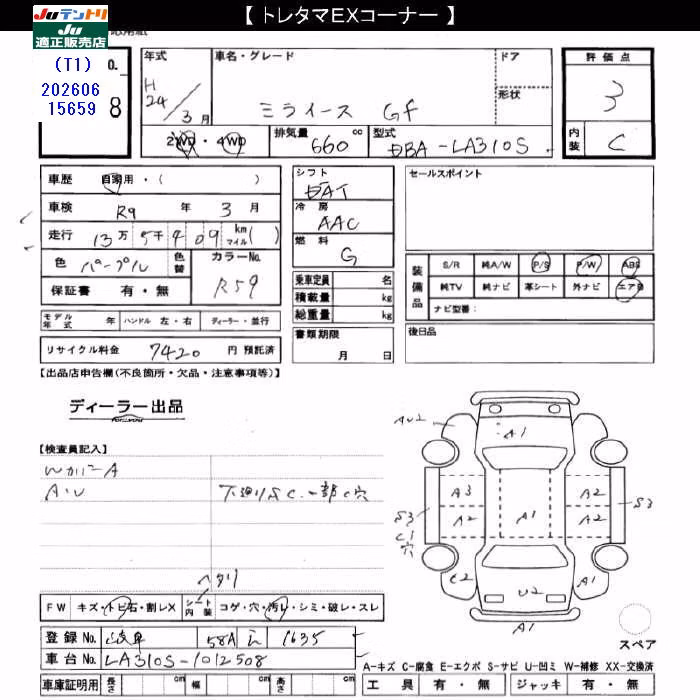 【 トレタマEXコーナー 】
Juテントリ
Ju
適正販売店
(T1)
202606
15659
O.
8
年式
H
24/3月
車名・グレード
ミライース Gf
ドア
形状
評価点
3
内装
C
2WD・4WD
排気量
660 cc
型式
DBA-LA310S
車歴
自家用・( )
車検
R9 年 3 月
走行
13万 5千 409 km マイル( )
色
パープル
色替
カラーNo.
R59
保証書
有・無
モデル年式
年
ハンドル 左・右
ディーラー・並行
リサイクル料金
7420 円 預託済
シフト
冷房
AAC
燃料
G
乗車定員 名
積載量 kg
総重量 kg
書類期限
月 日
セールスポイント
装備品
S/R 純A/W P/S P/W ABS
純TV 純ナビ 革シート 外ナビ エアB
ナビ型番:
後日品
【出品店申告欄(不良箇所・欠品・注意事項等)】
ディーラー出品
【検査員記入】
Wカバー A
A・U
下廻りS C.一部C穴
A1
A3
A2
A2
A1
A2
A2
S3
C1
穴
S3
U2
A1
A1
スペア
ヘタリ
FW キズ・トビ石・割レX
シート内装 コゲ・穴・汚レ・シミ・破レ・スレ
登録No. 岐阜 581 1635
車台No. LA310S-1012508
車庫証明用 長さ cm 幅 cm 高さ cm
A-キズ C-腐食 E-エクボ S-サビ U-凹ミ W-補修 XX-交換済
工具 有・無 ジャッキ 有・無